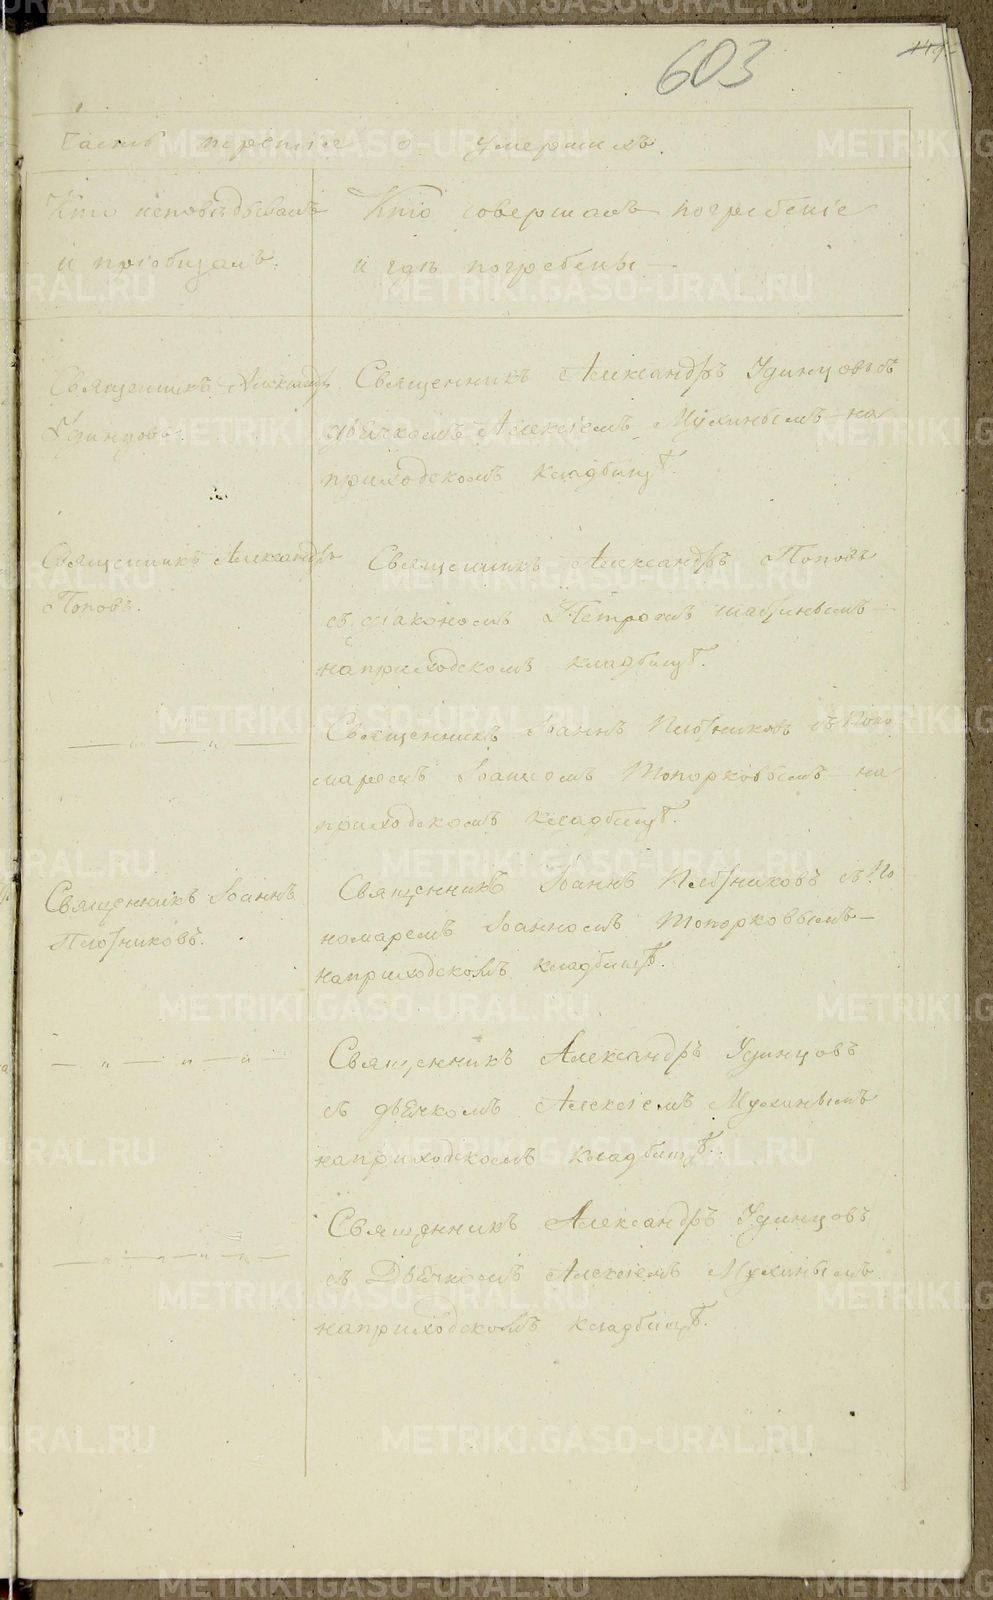 603
Часть третіе о умершихъ.
Кто исповѣдывалъ
и пріобщалъ.
Кто совершалъ погребеніе
и гдѣ погребены
Священникъ Александръ
Удинцовъ.
Священникъ Александръ Удинцовъ съ
дьячкомъ Алексіемъ Мухинымъ на
приходскомъ кладбищѣ.
Священникъ Александръ
Поповъ.
Священникъ Александръ Поповъ
съ діакономъ Петромъ
на приходскомъ кладбищѣ.
— " — " —
Священникъ Іоаннъ Плотниковъ съ Поно
маремъ Іоанномъ Топорковымъ на
приходскомъ кладбищѣ.
Священникъ Іоаннъ
Плотниковъ.
Священникъ Іоаннъ Плотниковъ съ По
номаремъ Іоанномъ Топорковымъ —
на приходскомъ кладбищѣ.
— " — " — " —
Священникъ Александръ Удинцовъ
съ дьячкомъ Алексіемъ Мухинымъ
на приходскомъ кладбищѣ.
— " — " — " —
Священникъ Александръ Удинцовъ
съ Дьячкомъ Алексіемъ Мухинымъ
на приходскомъ кладбищѣ.
METRIKI.GASO-URAL.RU